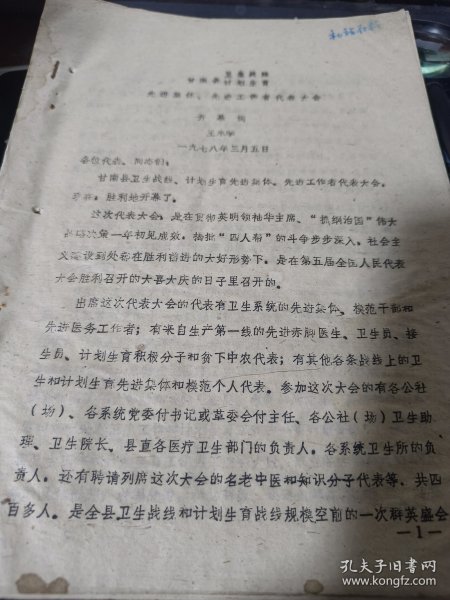 卫生战线
甘南县计划生育
先进集体、先进工作者代表大会
开幕词
一九七八年三月五日
各位代表、同志们：
甘南县卫生战线、计划生育先进集体、先进工作者代表大会，
今天，胜利地开幕了。
这次代表大会，是在贯彻英明领袖华主席、“抓纲治国”伟大
战略决策一年初见成效，揭批“四人帮”的斗争步步深入，社会主
义建设到处都在胜利前进的大好形势下，是在第五届全国人民代表
大会胜利召开的大喜大庆的日子里召开的。
出席这次代表大会的代表有卫生系统的先进集体、模范干部和
先进医务工作者；有来自生产第一线的先进赤脚医生、卫生员、接
生员、计划生育积极分子和贫下中农代表；有其他各条战线上的卫
生和计划生育先进集体和模范个人代表。参加这次大会的有各公社
（场）、各系统党委付书记或革委会付主任、各公社（场）卫生助
理、卫生院长、县直各医疗卫生部门的负责人。各系统卫生所的负
责人。还有聘请列席这次大会的名老中医和知识分子代表等，共四
百多人。是全县卫生战线和计划生育战线规模空前的一次群英盛会
—1—
孔夫子旧书网
www.kongfz.com